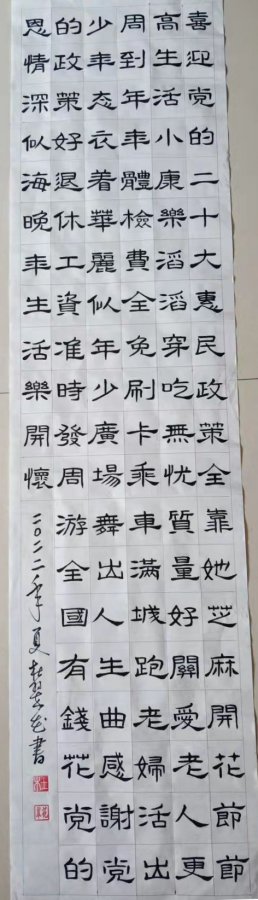 喜迎党的二十大惠民政策全靠她芝麻開花節節
高生活小康樂滔滔穿吃無忧質量好關愛老人更
周到年年體檢費全免刷卡乘車滿城跑老婦活出
少年态衣着華麗似年少廣場舞出人生曲感謝党
的政策好退休工資准時發周游全國有錢花党的
恩情深似海晚年生活樂開懷
二〇二二年夏書